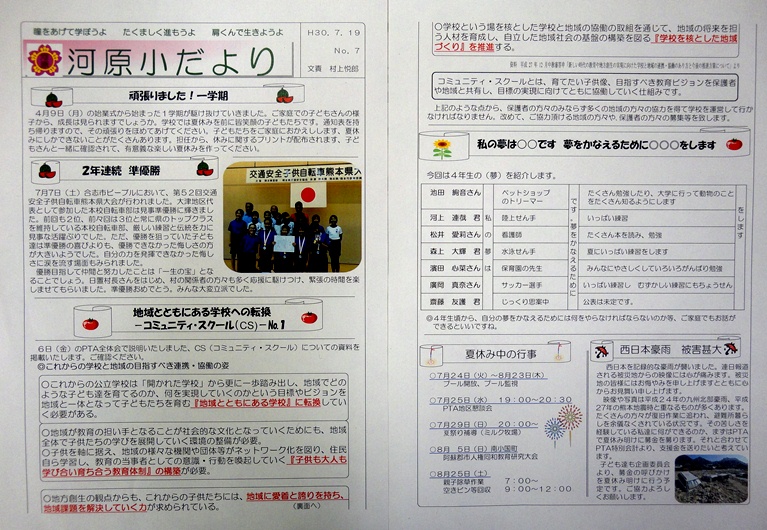 瞳をあげて学ぼうよ　たくましく進もうよ　肩くんで生きようよ
H30. 7. 19
No. 7
文責 村上悦郎
河原小だより
頑張りました！一学期
４月９日（月）の始業式から始まった１学期が駆け抜けていきました。ご家庭での子どもさんの様
子から、成長は見られますでしょうか。学校では夏休みを前に皆笑顔の子どもたちです。通知表を持
ち帰りますので、その頑張りをほめてあげてください。子どもたちをご家庭におかえしします。夏休
みにしかできないことがたくさんあります。担任から、休みに関するプリントが配布されます。子ど
もさんと一緒に確認されて、有意義な楽しい夏休みを作ってください。
2年連続 準優勝
7月7日（土）合志市ビーブルにおいて、第５２回交通
安全子供自転車熊本県大会が行われました。大津地区代
表として参加した本校自転車部は見事準優勝に輝きまし
た。前回も２位、前々回は３位と常に県のトップクラス
を維持している本校自転車部、厳しい練習と伝統を力に
見事な活躍ぶりでした。ただ、優勝を狙っていた子ども
達は準優勝の喜びよりも、優勝できなかった悔しさの方
が大きいようでした。自分の力を発揮できなかった悔し
さに涙を流す場面もみられました。
優勝目指して仲間と努力したことは「一生の宝」とな
ることでしょう。日置村長さんをはじめ、村の関係者の方々も多く応援に駆けつけ、緊張の時間を楽
しませてもらいました。準優勝おめでとう。みんな大変立派でした。
交通安全子供自転車熊本県大
地域とともにある学校への転換
－コミュニティ・スクール（CS）－No.1
６日（金）のPTA全体会で説明いたしました、CS（コミュニティ・スクール）についての資料を
掲載いたします。ご確認ください。
◎これからの学校と地域の目指すべき連携・協働の姿
○これからの公立学校は「開かれた学校」から更に一歩踏み出し、地域でどの
ような子ども達を育てるのか、何を実現していくのかという目標やビジョンを
地域と一体となって子どもたちを育む『地域とともにある学校』に転換してい
く必要がある。
○地域が教育の担い手となることが社会的な文化となっていくためにも、地域
全体で子供たちの学びを展開していく環境の整備が必要。
○子供を軸に据え、地域の様々な機関や団体等がネットワーク化を図り、住民
自ら学習し、教育の当事者としての意識・行動を喚起していく『子供も大人も
学び合い育ち合う教育体制』の構築が必要。
○地方創生の観点からも、これからの子供たちには、地域に愛着と誇りを持ち、
地域課題を解決していく力が求められている。　（裏面へ）
○学校という場を核とした学校と地域の協働の取組を通じて、地域の将来を担
う人材を育成し、自立した地域社会の基盤の構築を図る『学校を核とした地域
づくり』を推進する。
コミュニティ・スクールとは、育てたい子供像、目指すべき教育ビジョンを保護者
や地域と共有し、目標の実現に向けてともに協働していく仕組みです。
上記のような点から、保護者の方々のみならず多くの地域の方々の協力を得て学校を運営して行か
なければなりません。改めて、ご協力頂ける地域の方々や、保護者の方々の募集等を致します。
私の夢は○○です　夢をかなえるために○○○をします
今回は４年生の「夢」を紹介します。
池田　絢音さん　ペットショップのトリーマー　たくさん勉強したり、大学に行って動物のことをたくさん知るようにします
河上　連哉　君　陸上せん手　いっぱい練習
松井　愛莉さん　看護師　たくさん本を読み、勉強
森上　大輝　君　水泳せん手　夏にいっぱい練習をします
濱田　心菜さん　保育園の先生　みんなにやさしくしていろいろがんばり勉強
廣岡　真奈さん　サッカー選手　いっぱい練習し　むずかしい練習にもちょうせん
齋藤　友護　君　じっくり思案中　公表は未定です。
私の夢は
です。夢をかなえるために
をします
◎４年生頃から、自分の夢をかなえるためには何をやらなければならないのか等、ご家庭でもお話が
できるといいですね。
夏休み中の行事
○７月２４日（火）～８月２３日（木）
プール開放、プール監視
○７月２５日（水）　１９：００～２０：３０
PTA地区懇談会
○７月２９日（日）　２０：００～
夏祭り補導（ミルク牧場）
○８月　５日（日）南小国町
阿蘇郡市人権同和教育研究大会
○８月２５日（土）
親子除草作業　　７：００～
空きビン等回収　９：００～１２：００
西日本豪雨　被害甚大
西日本を記録的な豪雨が襲いました。連日報道
される被災地からの映像には心が痛みます。被災
地の皆様にはお悔やみを申し上げますとともに心
からお見舞い申し上げます。
映像や写真は平成２４年の九州北部豪雨、平成
２７年の熊本地震時と重なるものが多くあります。
たくさんの方々が復旧作業に追われ、避難所暮ら
しを余儀なくされている状況です。その苦しさを
経験している私達に何ができるのか、まずはPTA
で夏休み明けに募金を募ります。それと合わせて
PTA特別会計より、支援金を送りたいと考えてい
ます。
子ども達も企画委員会
より、募金の呼びかけ
を夏休み明けに行う予
定です。ご協力よろし
くお願いします。